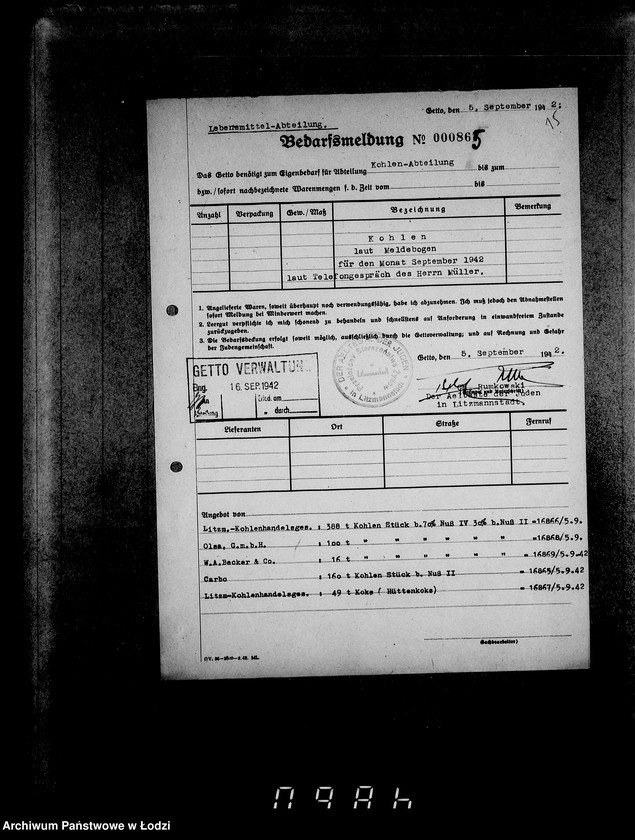 Getto, den 5. September 1942;
15
Lebensmittel-Abteilung.
Bedarfsmeldung № 000865
Das Getto benötigt zum Eigenbedarf für Abteilung Kohlen-Abteilung bis zum
bzw./sofort nachbezeichnete Warenmengen f. d. Zeit vom bis
Anzahl Verpackung Gew./Maß Bezeichnung Bemerkung
Kohlen
laut Meldebogen
für den Monat September 1942
laut Telefongespräch des Herrn Müller.
1. Angelieferte Waren, soweit überhaupt noch verwendungsfähig, habe ich abzunehmen. Ich muß jedoch den Abnahmestellen
sofort Meldung bei Minderwert machen.
2. Leergut verpflichte ich mich schonend zu behandeln und schnellstens auf Anforderung in einwandfreiem Zustande
zurückzugeben.
3. Die Bedarfsdeckung erfolgt soweit möglich, ausschließlich durch die Gettoverwaltung; und auf Rechnung und Gefahr
der Judengemeinschaft.
Getto, den 5. September 1942.
GETTO VERWALTUNG
Eing. 16. SEP. 1942
Erled. am
Abteilung
" durch
DER AELTESTE DER JUDEN
in Litzmannstadt
Rumkowski
Der Aelteste der Juden
in Litzmannstadt.
Lieferanten Ort Straße Fernruf
Angebot von
Litzm.-Kohlenhandelsges. : 388 t Kohlen Stück b.70% Nuß IV 30% b.Nuß II =16866/5.9.
Olsa, G.m.b.H. : 100 t " " " " " " =16868/5.9.
W.A.Becker & Co. : 16 t " " " " " " =16869/5.9.42
Carbo : 160 t Kohlen Stück b. Nuß II = 16865/5.9.42
Litzm-Kohlenhandelsges. : 49 t Koks ( Hüttenkoks) = 16867/5.9.42
(Sachbearbeiter)
Archiwum Państwowe w Łodzi